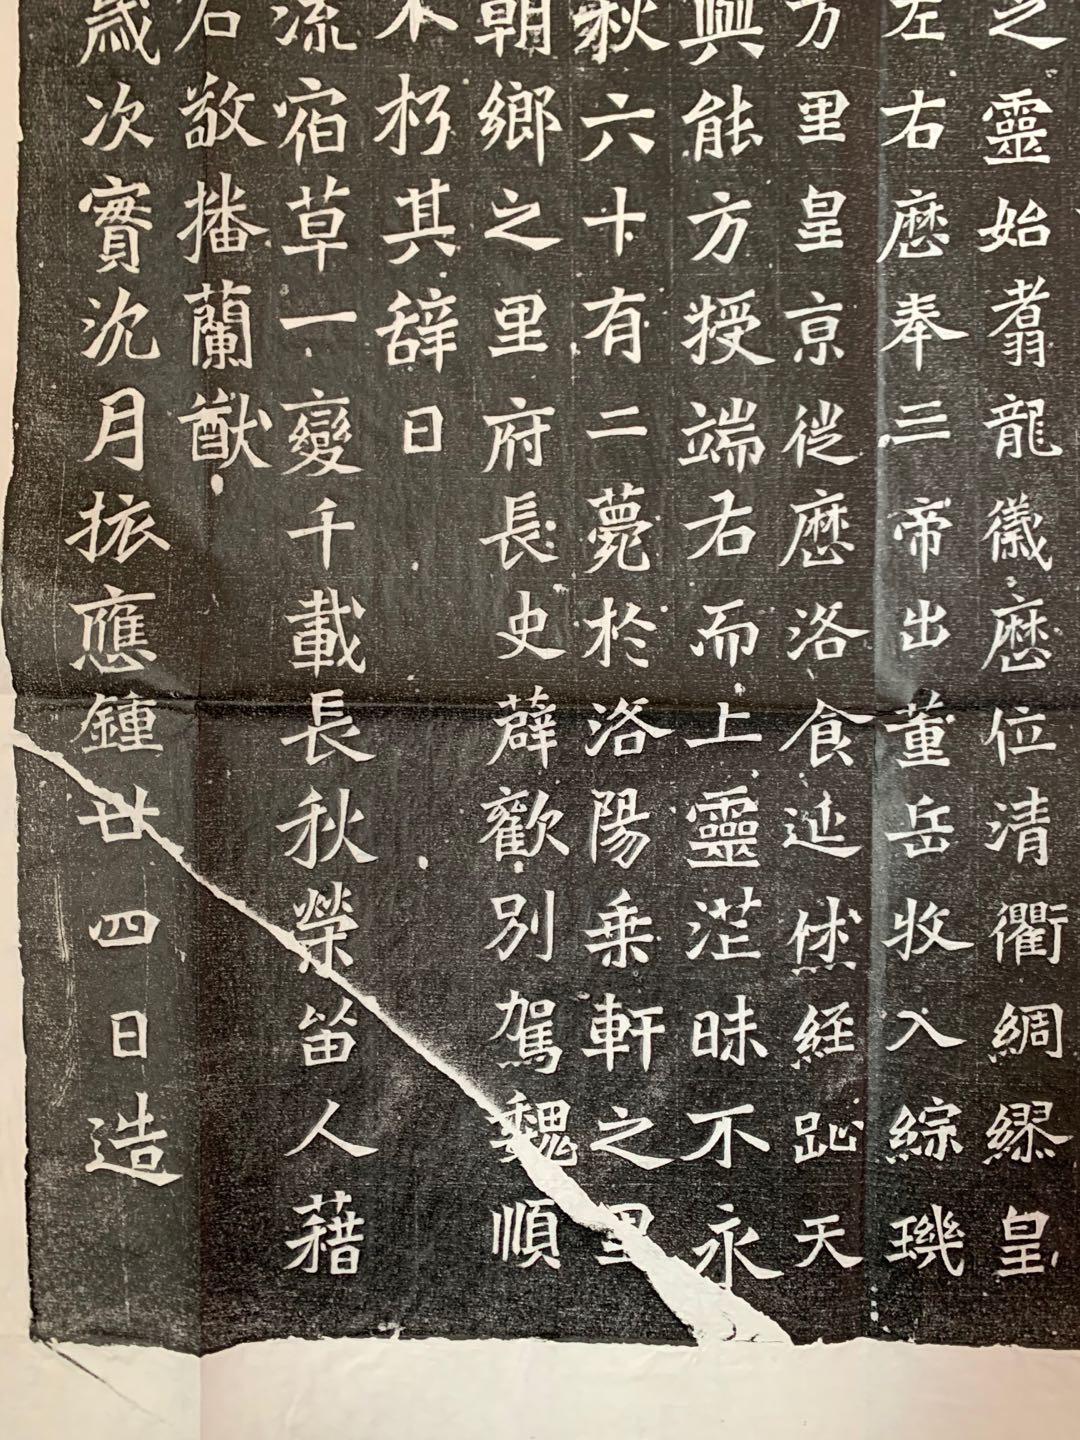 之靈始翥龍徽歷位清衢綢繆皇
左右歷奉三帝出董岳收入綜璣
方里皇京從歷洛食延恷經趾天
興能方授端右而上靈茫昧不永
秋六十有二薨於洛陽乘軒之里
朝鄉之里府長史薛歡別駕魏順
不朽其辭曰
流宿草一變千載長秋榮笛人藉
石敬播蘭猷
歲次實沈月旅應鍾廿四日造